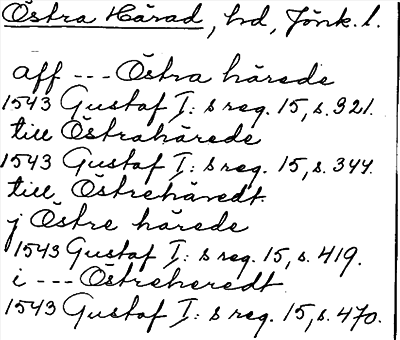 Östra Härad, hd, Jönk. l.
aff --- Östra härede
1543 Gustaf I: s reg. 15, s. 321.
till Östrahärede
1543 Gustaf I: s reg. 15, s. 344.
till Östrehäredt
j Östre härede
1543 Gustaf I: s reg. 15, s. 419.
i --- Östreheredt
1543 Gustaf I: s reg. 15, s. 470.